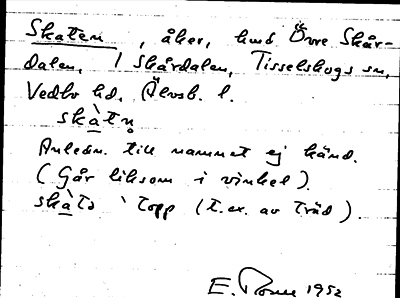 Skaten, åker, hmd Övre Skår-
dalen, 1 Skårdalen, Tisselskogs sn,
Vedbo hd, Älvsb. l.
skàtn̥
Anledn. till namnet ej känd.
(Går liksom i vinkel).
skàtə 'topp (t.ex. av träd).
E. 1952